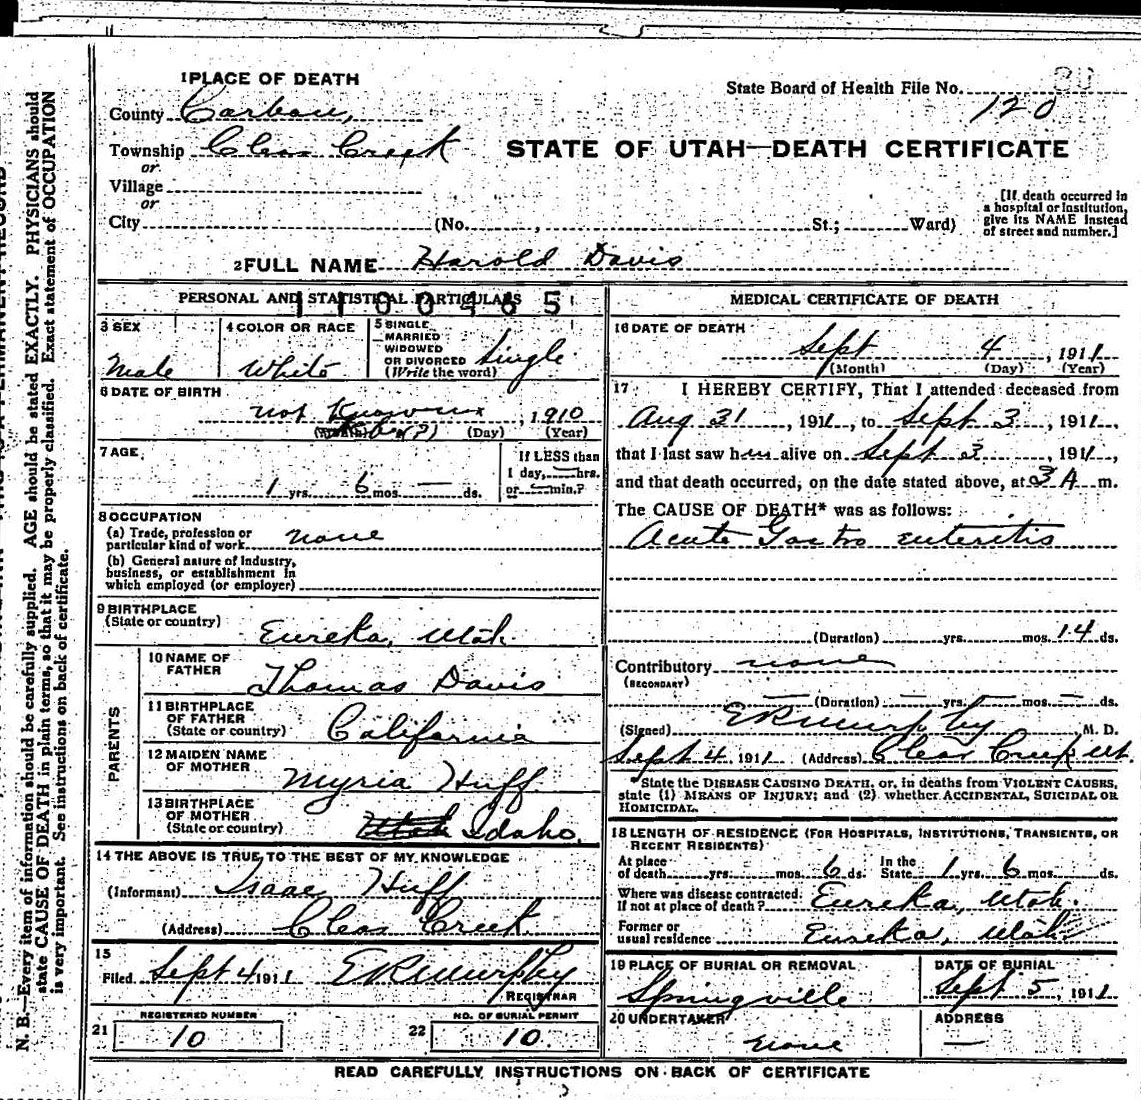 1 PLACE OF DEATH
County Carbon,
State Board of Health File No. 120
Township Clear Creek
STATE OF UTAH—DEATH CERTIFICATE
or
Village
or
City (No. , St.; Ward)
[If death occurred in
a hospital or institution,
give its NAME instead
of street and number.]
2 FULL NAME Harold Davis
PERSONAL AND STATISTICAL PARTICULARS
3 SEX
Male
4 COLOR OR RACE
White
5 SINGLE
MARRIED
WIDOWED
OR DIVORCED
(Write the word)
Single
6 DATE OF BIRTH
not Known , 1910
(Day) (Year)
7 AGE
1 yrs. 6 mos. — ds.
If LESS than
1 day, — hrs.
or — min.?
8 OCCUPATION
(a) Trade, profession or
particular kind of work none
(b) General nature of industry,
business, or establishment in
which employed (or employer)
9 BIRTHPLACE
(State or country)
Eureka, Utah
PARENTS
10 NAME OF
FATHER
Thomas Davis
11 BIRTHPLACE
OF FATHER
(State or country)
California
12 MAIDEN NAME
OF MOTHER
Myria Huff
13 BIRTHPLACE
OF MOTHER
(State or country)
Utah Idaho.
14 THE ABOVE IS TRUE TO THE BEST OF MY KNOWLEDGE
(Informant) Isaac Huff
(Address) Clear Creek
15
Filed Sept 4 1911 ERMurphy
REGISTRAR
21
REGISTERED NUMBER
10
22
NO. OF BURIAL PERMIT
10.
MEDICAL CERTIFICATE OF DEATH
16 DATE OF DEATH
Sept 4, 1911
(Month) (Day) (Year)
17 I HEREBY CERTIFY, That I attended deceased from
Aug 31, 1911, to Sept 3, 1911,
that I last saw him alive on Sept 3, 1911,
and that death occurred, on the date stated above, at 3 A m.
The CAUSE OF DEATH* was as follows:
Acute Gastro enteritis
(Duration) yrs. mos. 14 ds.
Contributory none
(SECONDARY)
— (Duration) — yrs. — mos. — ds.
(Signed) ERMurphy M. D.
Sept 4, 1911 (Address) Clear Creek Ut.
State the DISEASE CAUSING DEATH, or, in deaths from VIOLENT CAUSES,
state (1) MEANS OF INJURY; and (2) whether ACCIDENTAL, SUICIDAL OR
HOMICIDAL.
18 LENGTH OF RESIDENCE (FOR HOSPITALS, INSTITUTIONS, TRANSIENTS, OR
RECENT RESIDENTS)
At place
of death yrs. mos. 6 ds.
In the
State 1 yrs. 6 mos. ds.
Where was disease contracted,
If not at place of death? Eureka, Utah.
Former or
usual residence Eureka, Utah
19 PLACE OF BURIAL OR REMOVAL
Springville
DATE OF BURIAL
Sept 5, 1911
20 UNDERTAKER
none
ADDRESS
—
READ CAREFULLY INSTRUCTIONS ON BACK OF CERTIFICATE
N. B.—Every item of information should be carefully supplied. AGE should be stated EXACTLY. PHYSICIANS should
state CAUSE OF DEATH in plain terms, so that it may be properly classified. Exact statement of OCCUPATION
is very important. See instructions on back of certificate.